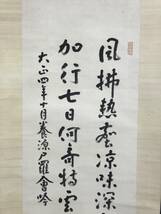 風拂熱塵涼味深
加行七日何奇特雲
大正四年十月養源尸羅會吟